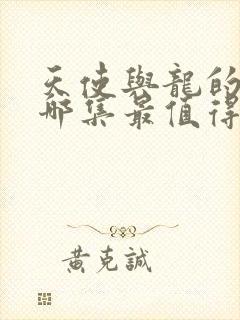 天使與龍的
哪集最值得
黃克誠